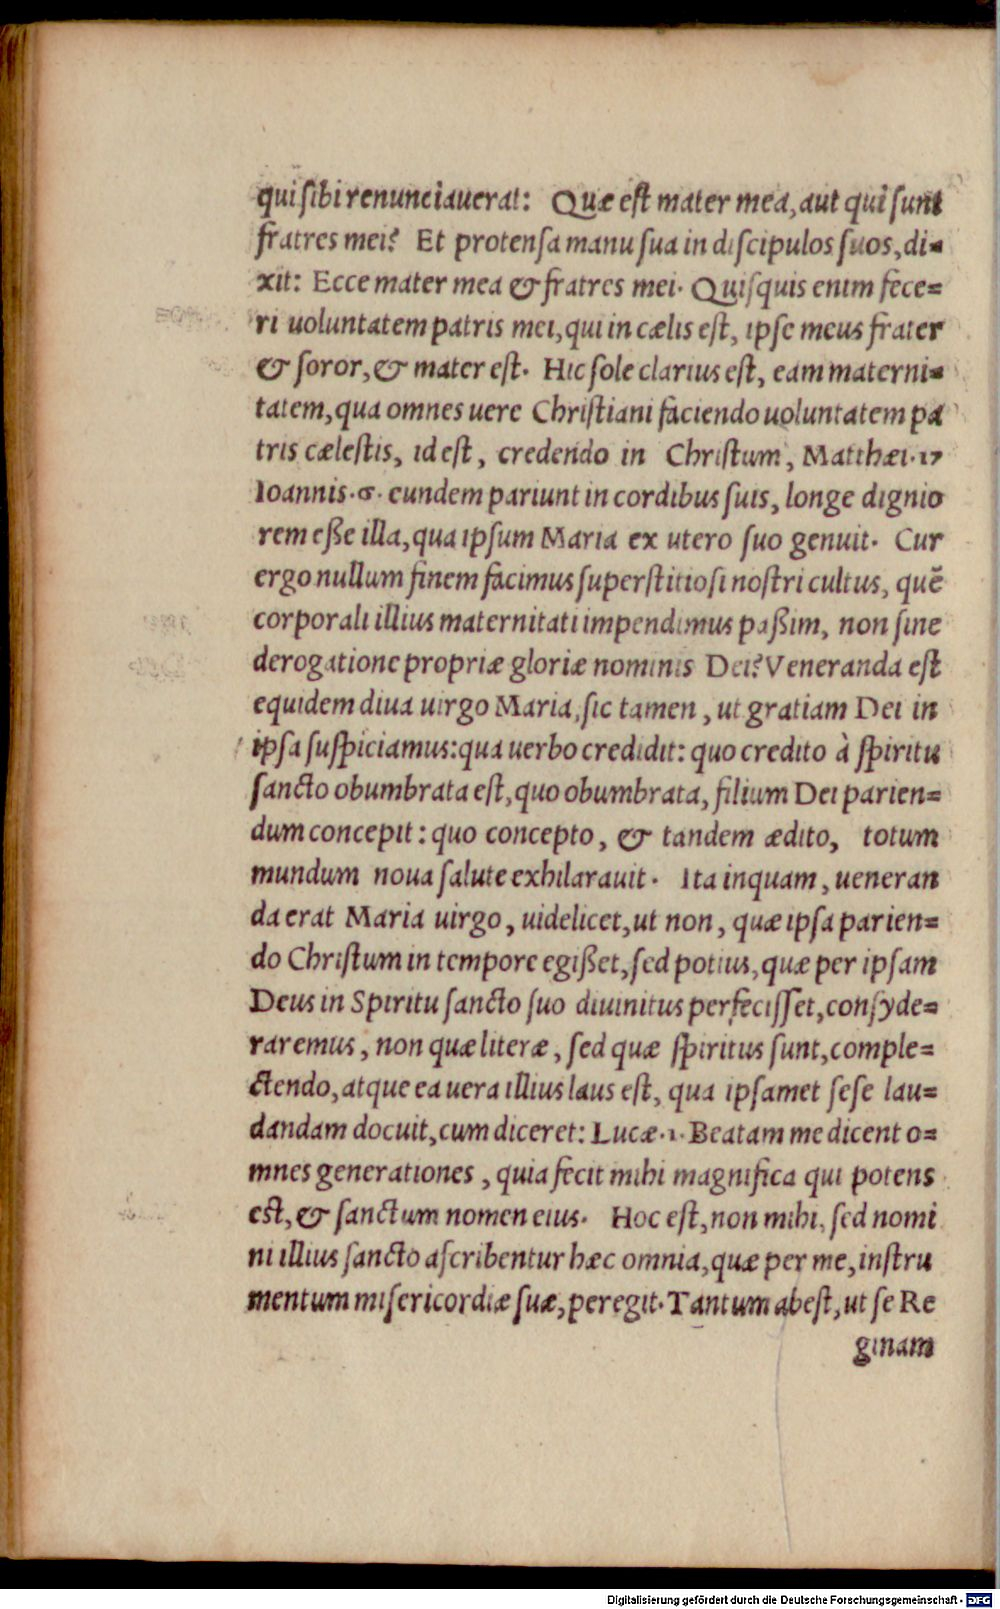 qui ſibi renunciauerat: Quæ eſt mater mea, aut qui ſunt
fratres mei? Et protenſa manu ſua in diſcipulos ſuos, di=
xit: Ecce mater mea & fratres mei. Quiſquis enim fece=
ri uoluntatem patris mei, qui in cælis eſt, ipſe meus frater
& ſoror, & mater eſt. Hic ſole clarius eſt, eam materni=
tatem, qua omnes uere Chriſtiani faciendo uoluntatem pa
tris cæleſtis, id eſt, credendo in Chriſtum, Matthæi.17
Ioannis.6. eundem pariunt in cordibus ſuis, longe dignio
rem eße illa, qua ipſum Maria ex utero ſuo genuit. Cur
ergo nullum finem facimus ſuperſtitioſi noſtri cultus, quē
corporali illius maternitati impendimus paßim, non ſine
derogatione propriæ gloriæ nominis Dei? Veneranda eſt
equidem diua uirgo Maria, ſic tamen, ut gratiam Dei in
ipſa ſuſpiciamus: qua uerbo credidit: quo credito à ſpiritu
ſancto obumbrata eſt, quo obumbrata, filium Dei parien=
dum concepit: quo concepto, & tandem ædito, totum
mundum noua ſalute exhilarauit. Ita inquam, ueneran
da erat Maria uirgo, uidelicet, ut non, quæ ipſa parien=
do Chriſtum in tempore egißet, ſed potius, quæ per ipſam
Deus in Spiritu ſancto ſuo diuinitus perfeciſſet, conſyde=
raremus, non quæ literæ, ſed quæ ſpiritus ſunt, comple=
ctendo, atque ea uera illius laus eſt, qua ipſamet ſeſe lau=
dandam docuit, cum diceret: Lucæ.1. Beatam me dicent o=
mnes generationes, quia fecit mihi magnifica qui potens
eſt, & ſanctum nomen eius. Hoc eſt, non mihi, ſed nomi
ni illius ſancto aſcribentur hæc omnia, quæ per me, inſtru
mentum miſericordiæ ſuæ, peregit. Tantum abeſt, ut ſe Re
ginam
Digitalisierung gefördert durch die Deutsche Forschungsgemeinschaft - DFG